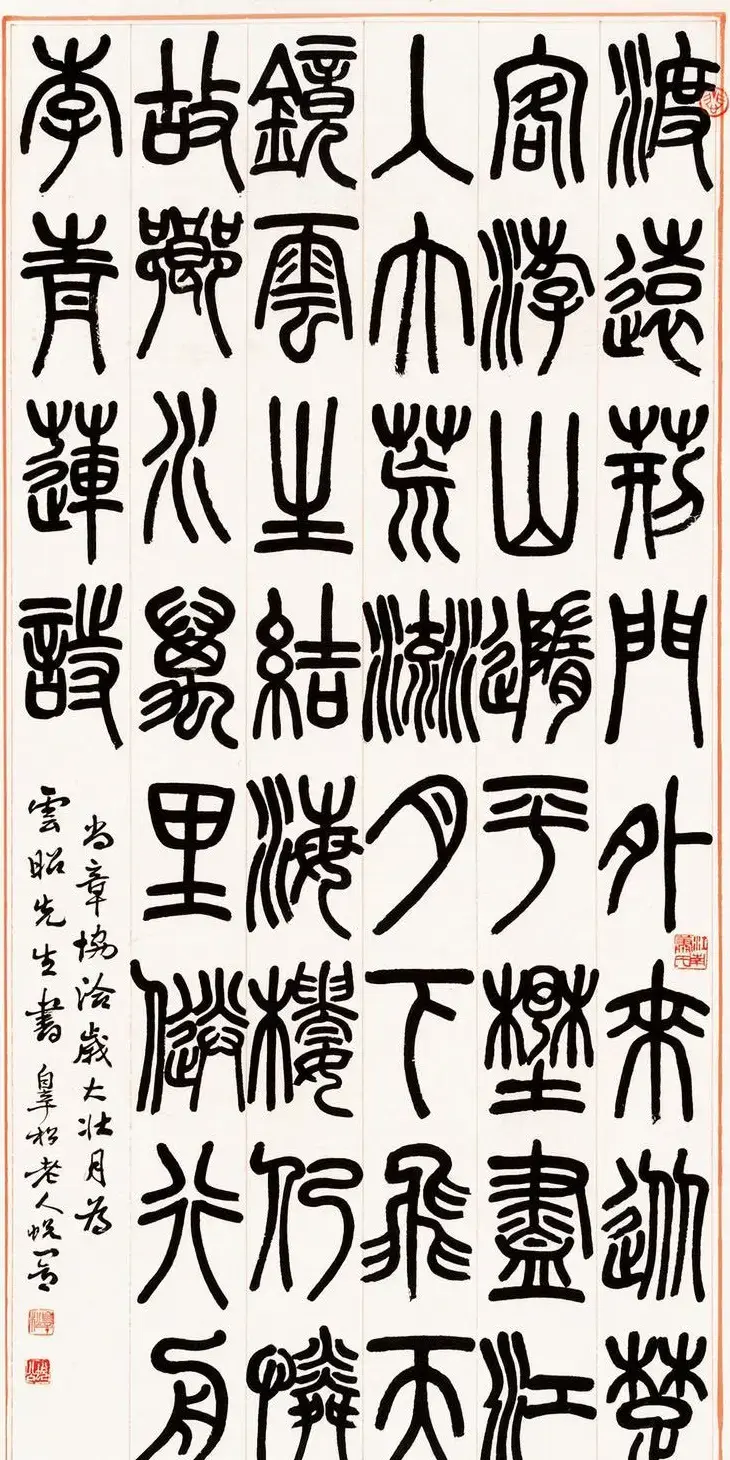 渡遠荊門外來從楚
客游山隨平壄盡江
入大荒流月下飛天
鏡雲生結海樓仍憐
故鄉水萬里送行舟
李青蓮詩
尚章協洽歲大壯月為
雲昭先生書 皋松老人蛻盦
江南蕭氏